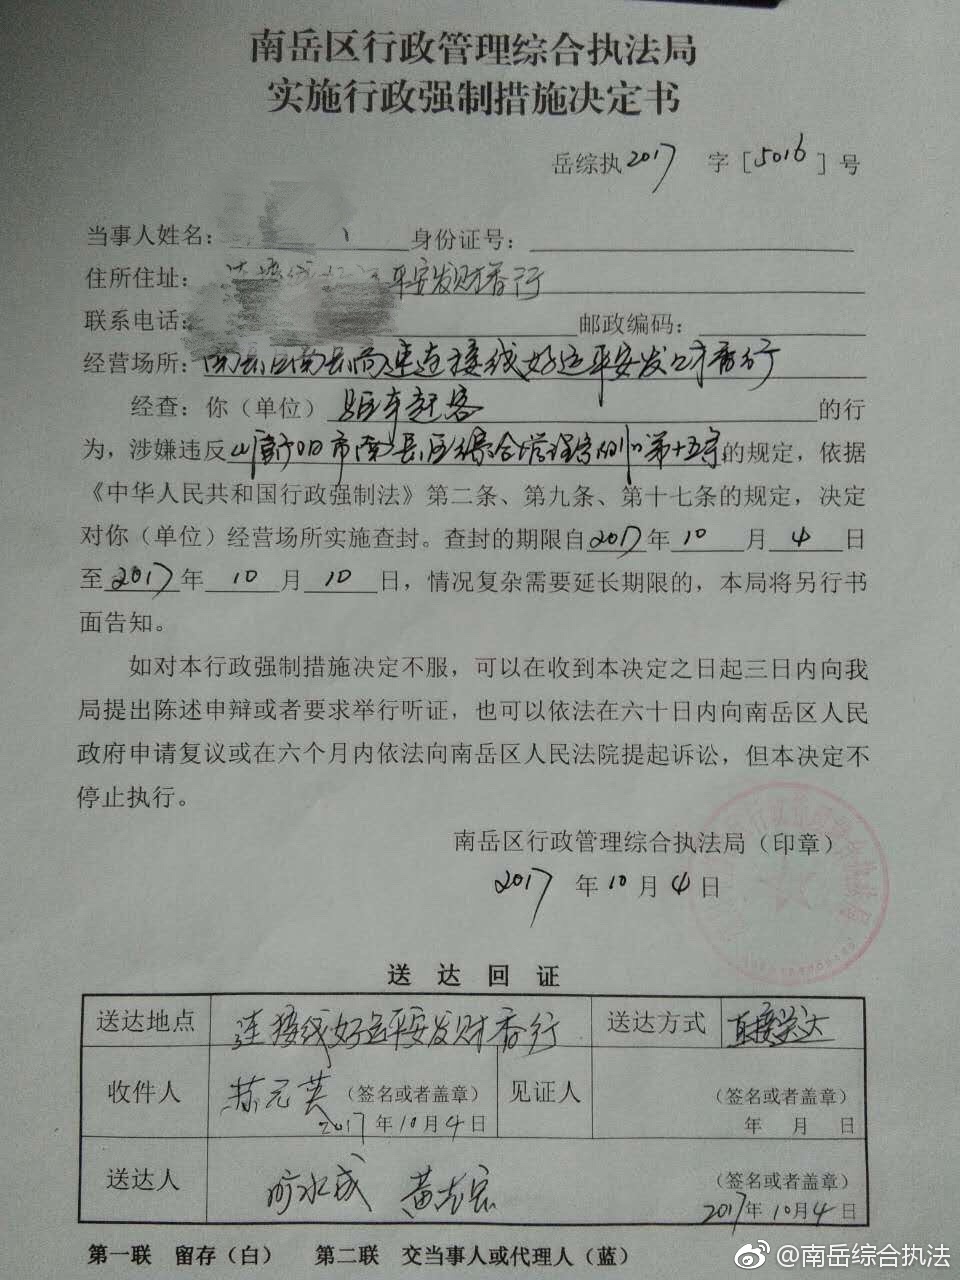 南岳区行政管理综合执法局
实施行政强制措施决定书
岳综执2017 字[5016]号
当事人姓名： 身份证号：
住所住址： 平安发财香行
联系电话： 邮政编码：
经营场所：南岳区南岳高速连接线好运平安发财香行
经查：你（单位） 车赶客 的行
为，涉嫌违反《衡阳市南岳区综合管理条例》第十五条的规定，依据
《中华人民共和国行政强制法》第二条、第九条、第十七条的规定，决定
对你（单位）经营场所实施查封。查封的期限自2017年10月4日
至2017年10月10日，情况复杂需要延长期限的，本局将另行书
面告知。
如对本行政强制措施决定不服，可以在收到本决定之日起三日内向我
局提出陈述申辩或者要求举行听证，也可以依法在六十日内向南岳区人民
政府申请复议或在六个月内依法向南岳区人民法院提起诉讼，但本决定不
停止执行。
南岳区行政管理综合执法局（印章）
2017年10月4日
送达回证
送达地点 连接线好运平安发财香行 送达方式 直接送达
收件人 元英 （签名或者盖章） 见证人 （签名或者盖章）
2017年10月4日 年 月 日
送达人 水成 黄志宏 （签名或者盖章）
2017年10月4日
第一联 留存（白） 第二联 交当事人或代理人（蓝）
@南岳综合执法